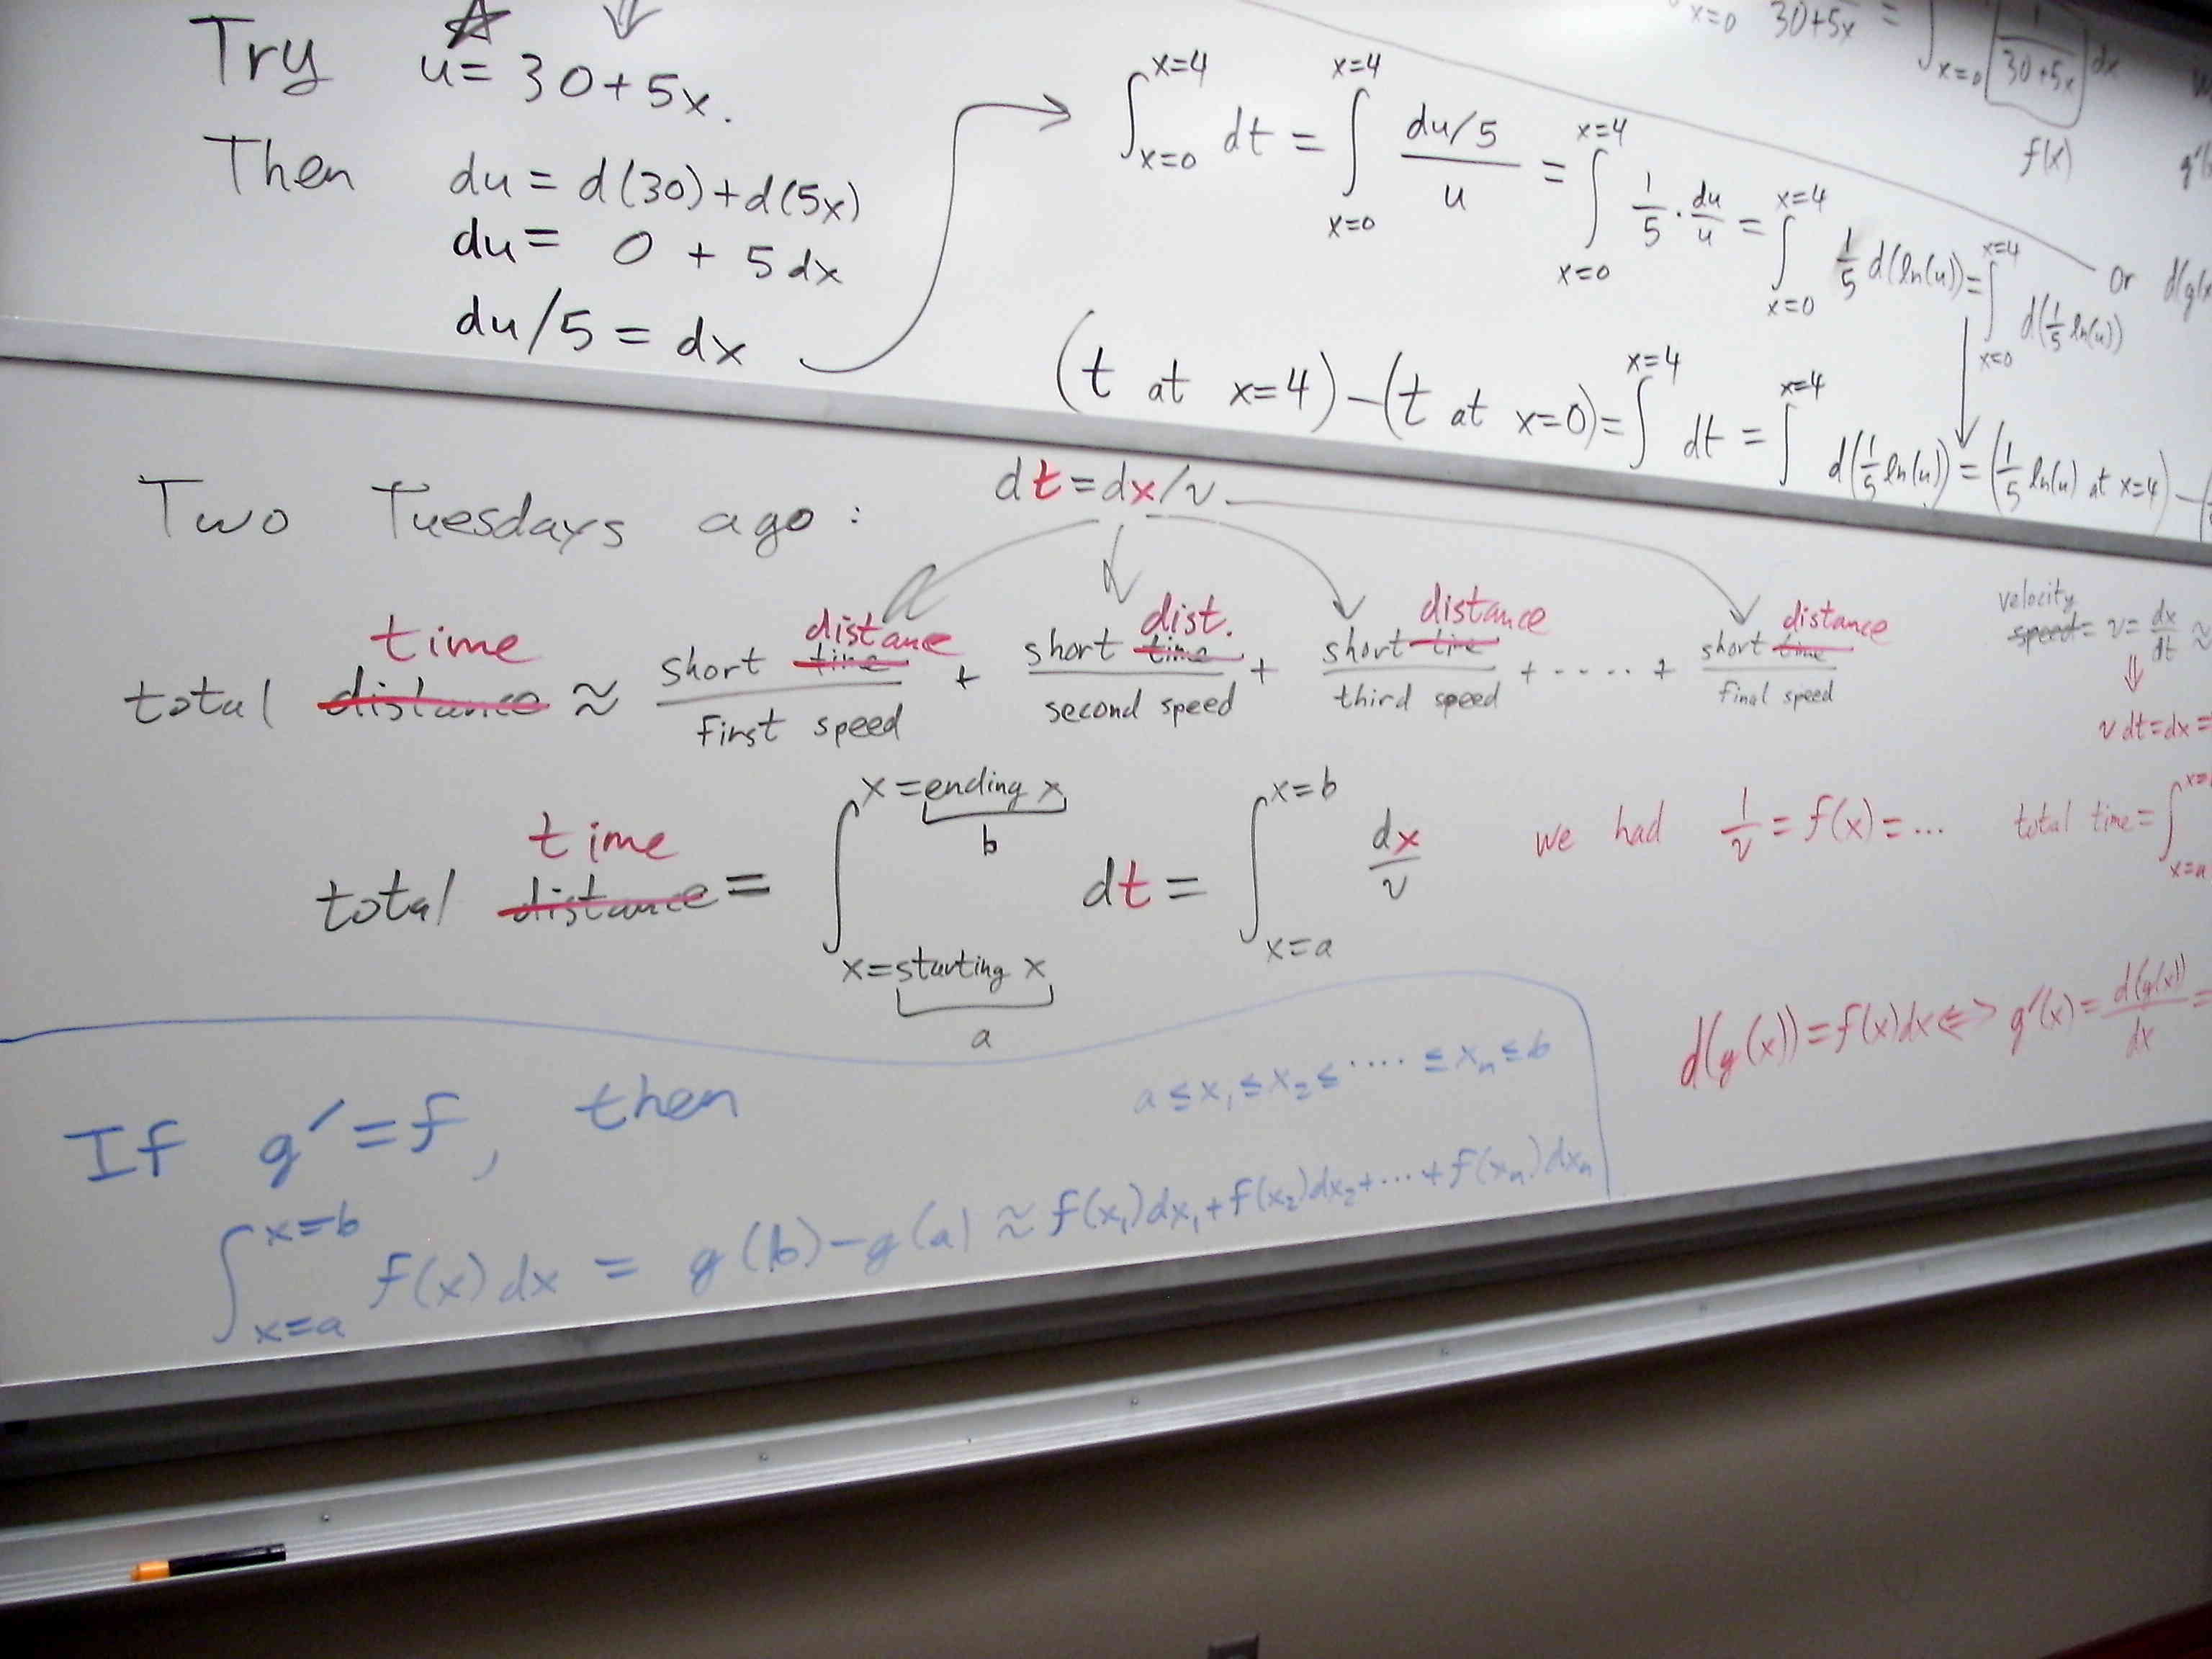 Try u = 30 + 5x.
Then du = d(30) + d(5x)
du = 0 + 5 dx
du/5 = dx
x=0 30+5x = ∫_{x=0} [1/(30+5x)] dx
f(x)
∫_{x=0}^{x=4} dt = ∫_{x=0}^{x=4} (du/5)/u = ∫_{x=0}^{x=4} 1/5 · du/u = ∫_{x=0}^{x=4} 1/5 d(ln(u)) = ∫_{x=0}^{x=4} d(1/5 ln(u))
or d(g(x
(t at x=4) − (t at x=0) = ∫^{x=4} dt = ∫^{x=4} d(1/5 ln(u)) = (1/5 ln(u) at x=4) − (
Two Tuesdays ago: dt = dx/v
total ~~distance~~ time ≈ short ~~time~~ distance / first speed + short ~~time~~ dist. / second speed + short ~~time~~ distance / third speed + ····· + short ~~time~~ distance / final speed
velocity ~~speed~~ = v = dx/dt ≈
⇓
v dt = dx =
total ~~distance~~ time = ∫_{x = starting x}^{x = ending x} dt = ∫_{x=a}^{x=b} dx/v
b
a
we had 1/v = f(x) = ...
total time = ∫_{x=a}^{x=
d(g(x)) = f(x)dx ⇔ g′(x) = d(g(x))/dx =
If g′ = f, then
a ≤ x₁ ≤ x₂ ≤ ···· ≤ xₙ ≤ b
∫_{x=a}^{x=b} f(x) dx = g(b) − g(a) ≈ f(x₁)dx₁ + f(x₂)dx₂ + ··· + f(xₙ)dxₙ